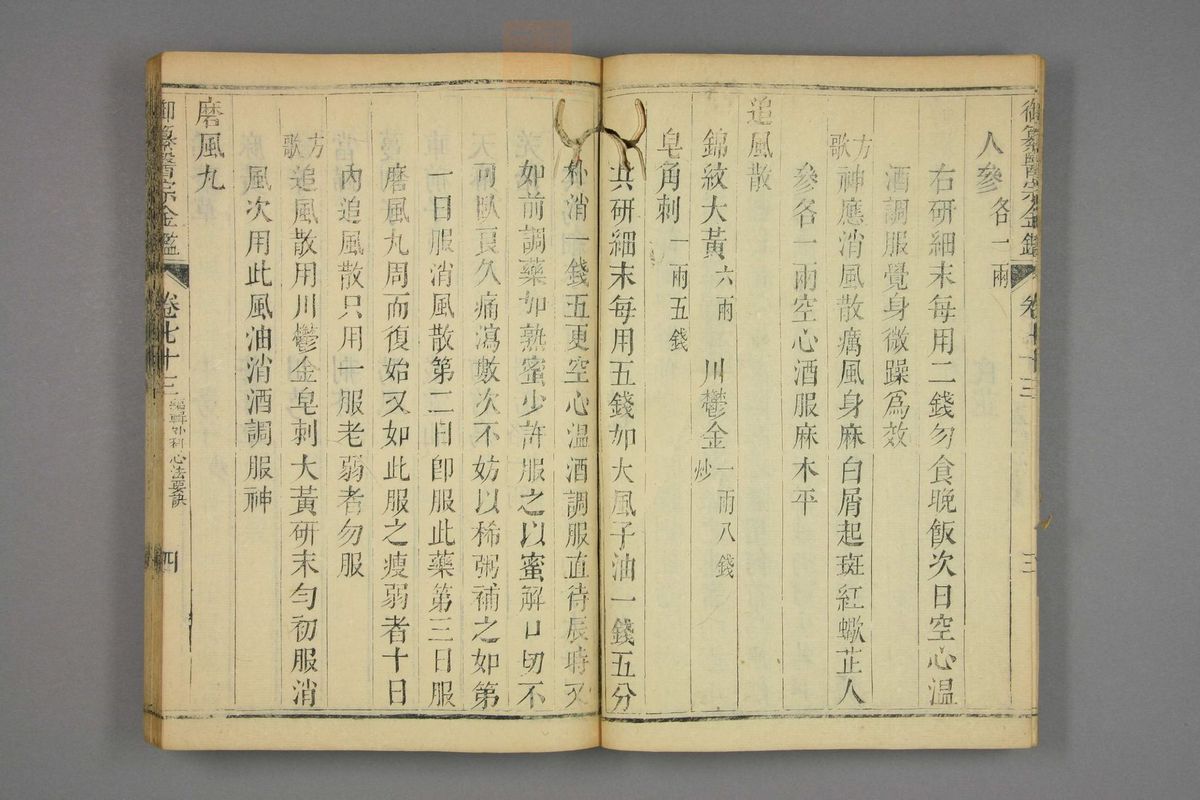 御纂醫宗金鑑 卷七十三 三
人參各一兩
右研細末每用二錢勿食晚飯次日空心溫
酒調服覺身微躁為效
方歌 神應消風散癘風身麻白屑起斑紅蠍芷人
參各一兩空心酒服麻木平
追風散
錦紋大黃六兩 川鬱金一兩八錢炒
皂角刺一兩五錢
共研細末每用五錢加大風子油一錢五分
朴消一錢五更空心溫酒調服直待辰時又
如前調藥加熟蜜少許服之以蜜解口切不
可臥良久痛瀉數次不妨以稀粥補之如第
一日服消風散第二日卽服此藥第三日服
磨風丸周而復始又如此服之瘦弱者十日
內追風散只用一服老弱者勿服
方歌 追風散用川鬱金皂刺大黃研末勻初服消
風次用此風油消酒調服神
磨風丸
御纂醫宗金鑑 卷七十三 編輯外科心法要訣 四